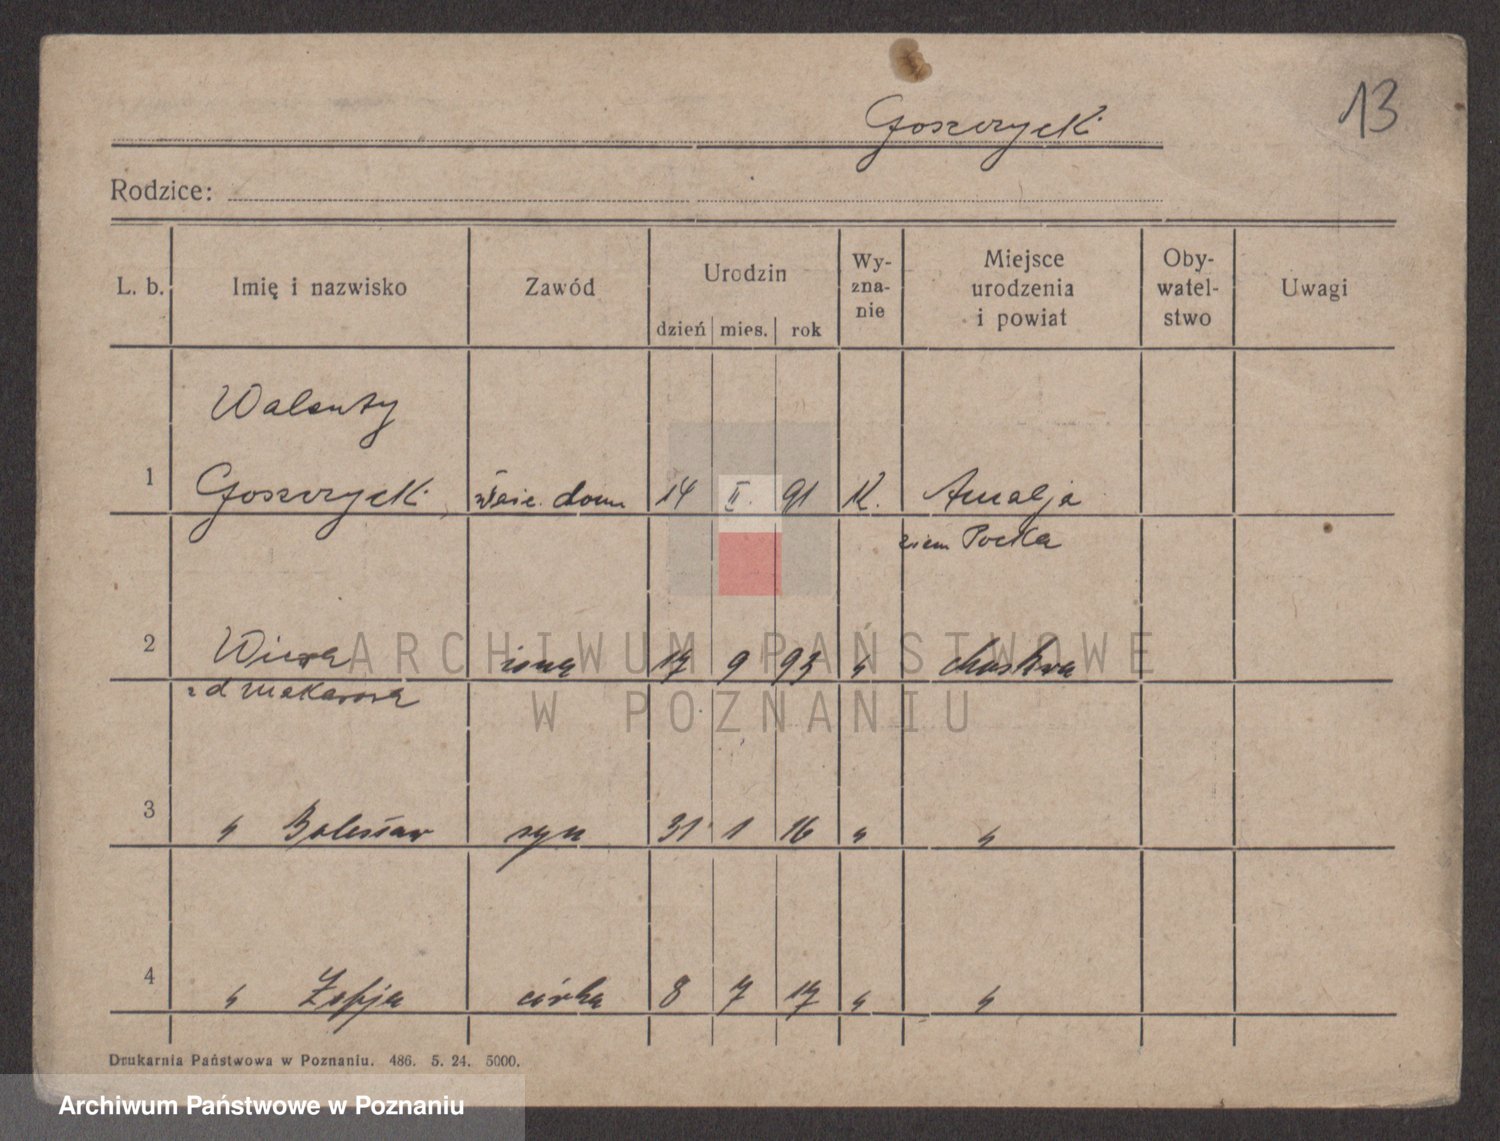 13
Goszczycki
Rodzice:
L. b. Imię i nazwisko Zawód Urodzin dzień mies. rok Wy-zna-nie Miejsce urodzenia i powiat Oby-watel-stwo Uwagi
Walenty
1 Goszczycki właśc. domu 14 II. 91 K. Amalja
ziem
2 Wiera żona 17 9 93 " Moskwa
z d Makarowa
3 " Bolesław syn 31 1 16 " "
4 " Zofja córka 8 7 17 " "
Drukarnia Państwowa w Poznaniu. 486. 5. 24. 5000.
ARCHIWUM PAŃSTWOWE
W POZNANIU
Archiwum Państwowe w Poznaniu